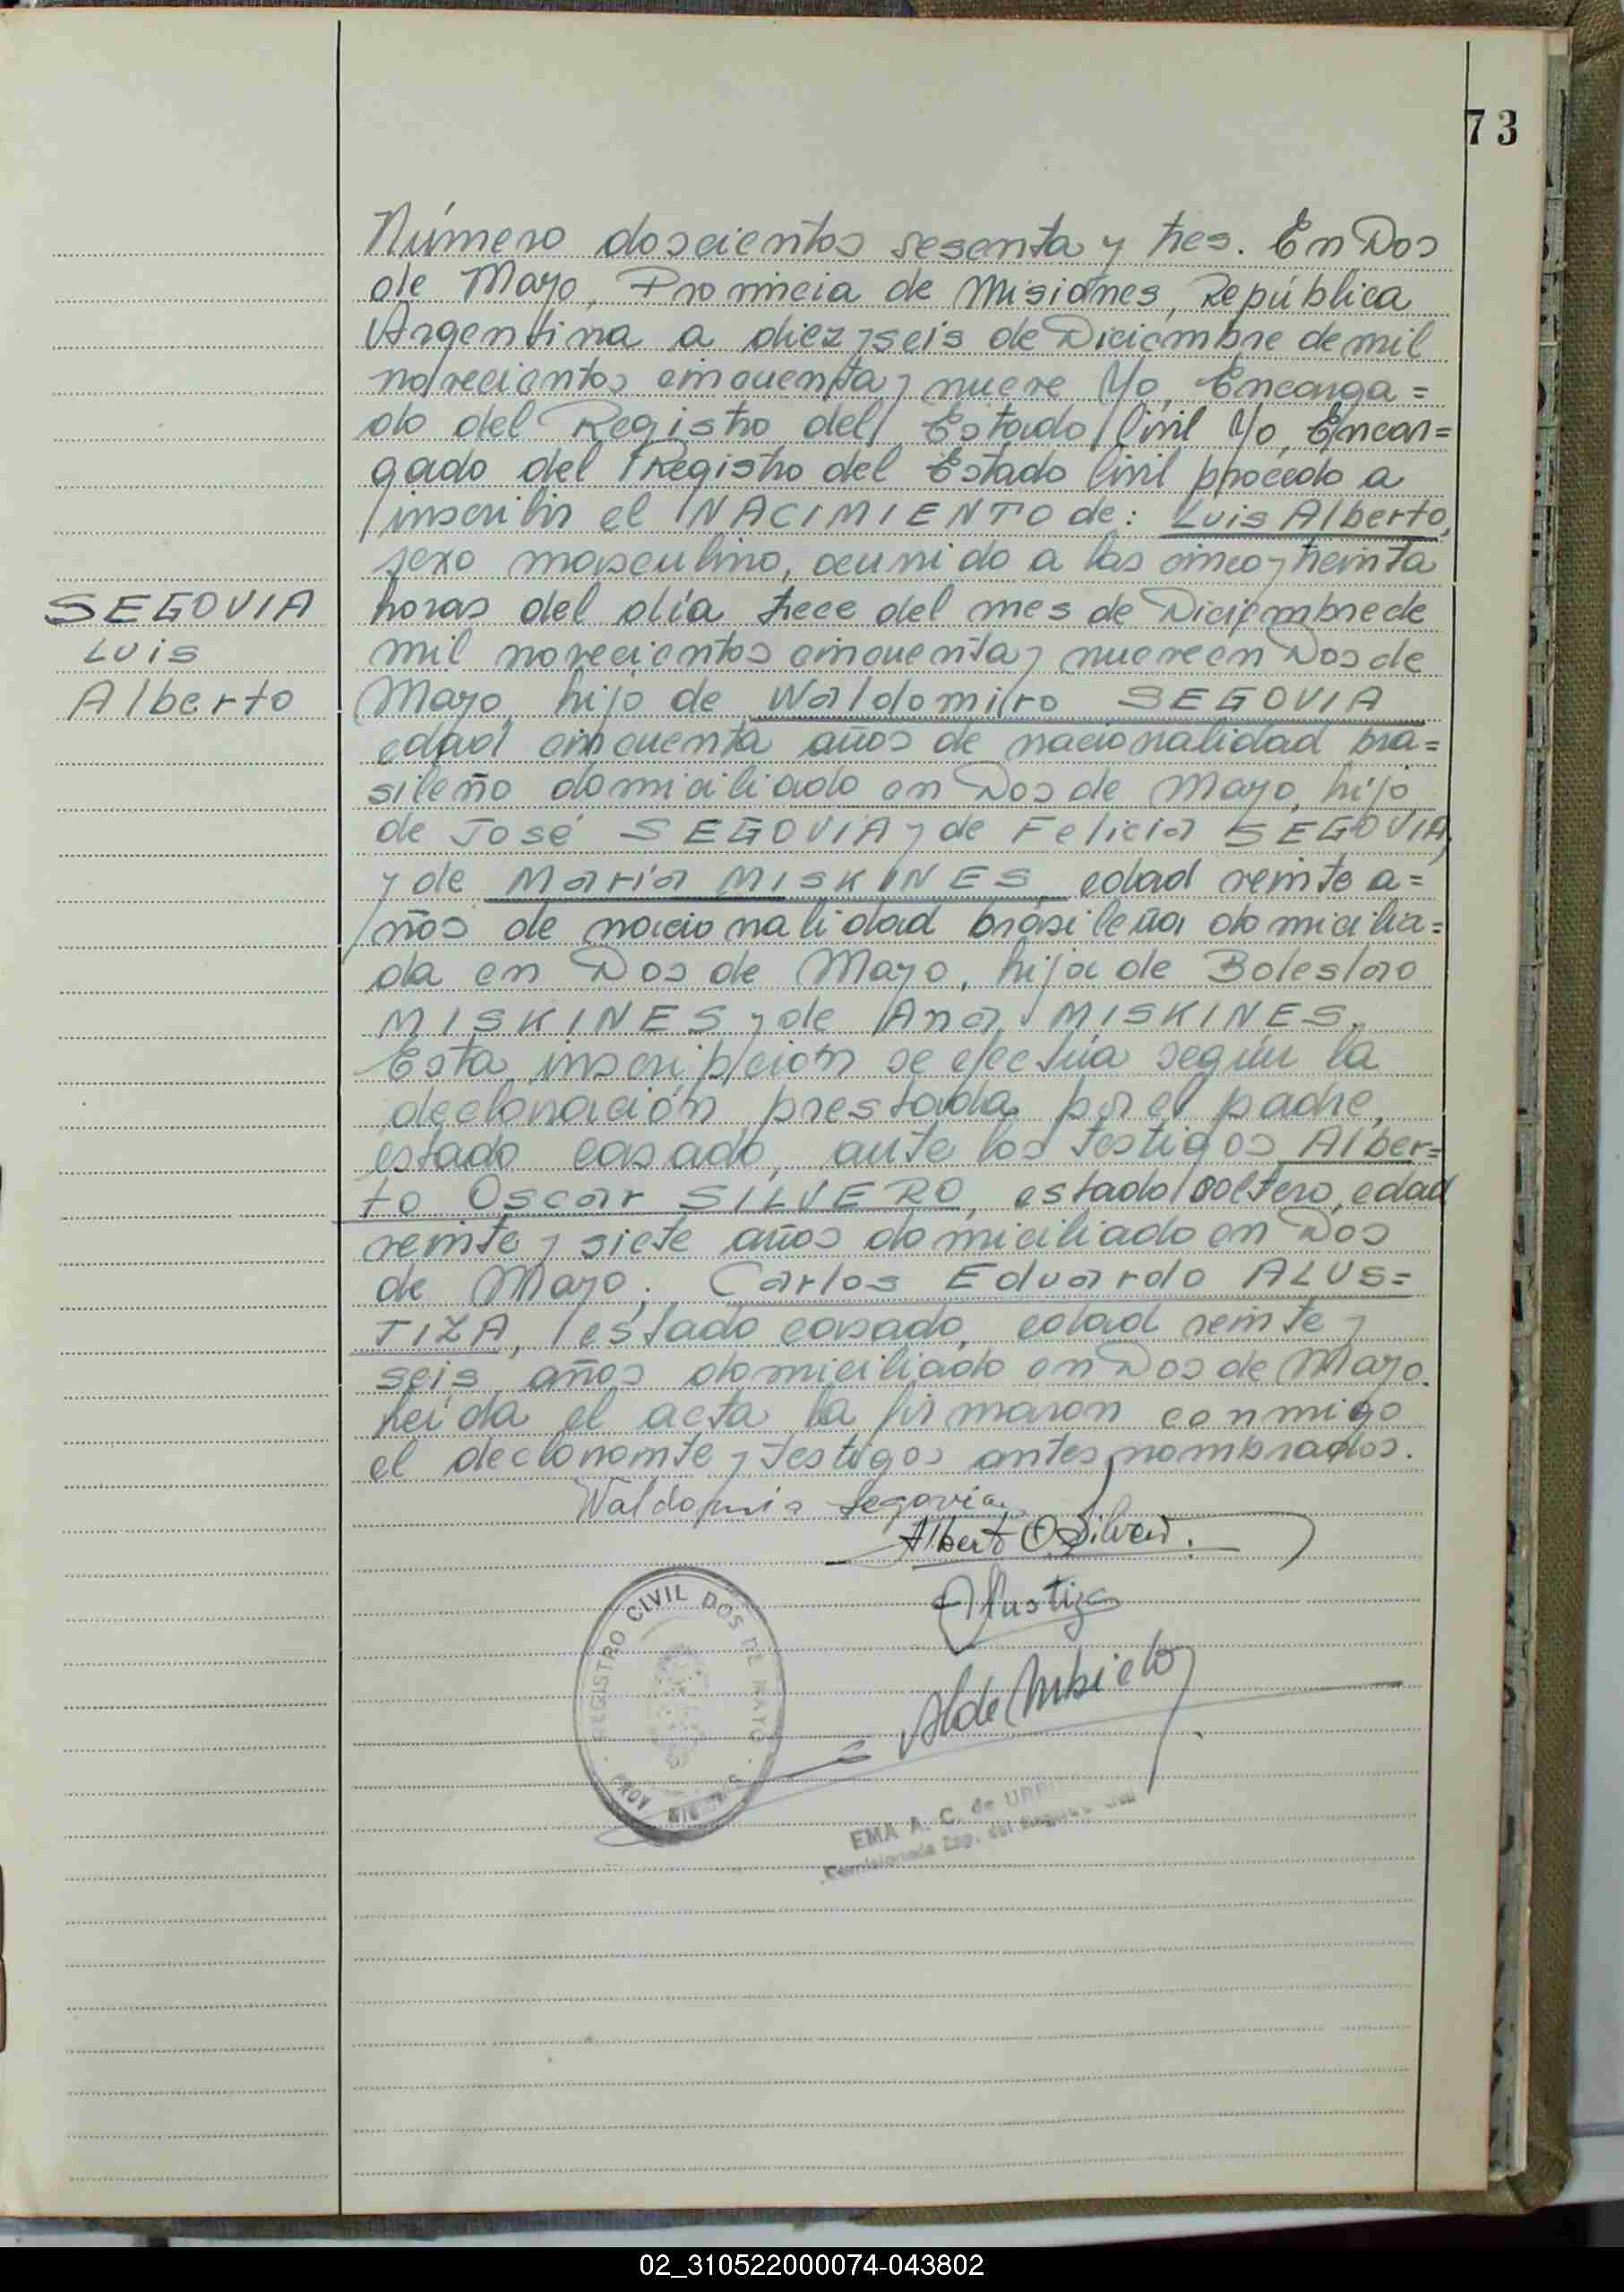 73
Número doscientos sesenta y tres. En Dos
de Mayo, Provincia de Misiones, República
Argentina a diez y seis de Diciembre de mil
novecientos cincuenta y nueve Yo, Encarga=
do del Registro del Estado Civil Yo, Encar=
gado del Registro del Estado Civil procedo a
inscribir el NACIMIENTO de: Luis Alberto,
sexo masculino, ocurrido a las cinco y treinta
horas del día trece del mes de Diciembre de
mil novecientos cincuenta y nueve en Dos de
Mayo, hijo de Waldomiro SEGOVIA
edad cincuenta años de nacionalidad bra=
sileño domiciliado en Dos de Mayo, hijo
de José SEGOVIA y de Felicia SEGOVIA,
y de María MISKINES, edad veinte a=
ños de nacionalidad brasileña domicilia=
da en Dos de Mayo, hija de Boleslao
MISKINES y de Ana MISKINES.
Esta inscripción se efectúa según la
declaración prestada por el padre,
estado casado, ante los testigos Alber=
to Oscar SILVERO, estado soltero, edad
veinte y siete años domiciliado en Dos
de Mayo; Carlos Eduardo ALUS=
TIZA, estado casado, edad veinte y
seis años domiciliado en Dos de Mayo.
Leída el acta la firmaron conmigo
el declarante y testigos antes nombrados.
SEGOVIA
Luis
Alberto
Waldomiro Segovia
Alberto O. Silvero.
Alustiza
REGISTRO CIVIL DOS DE MAYO
PROV. MISIONES
EMA A. C. de